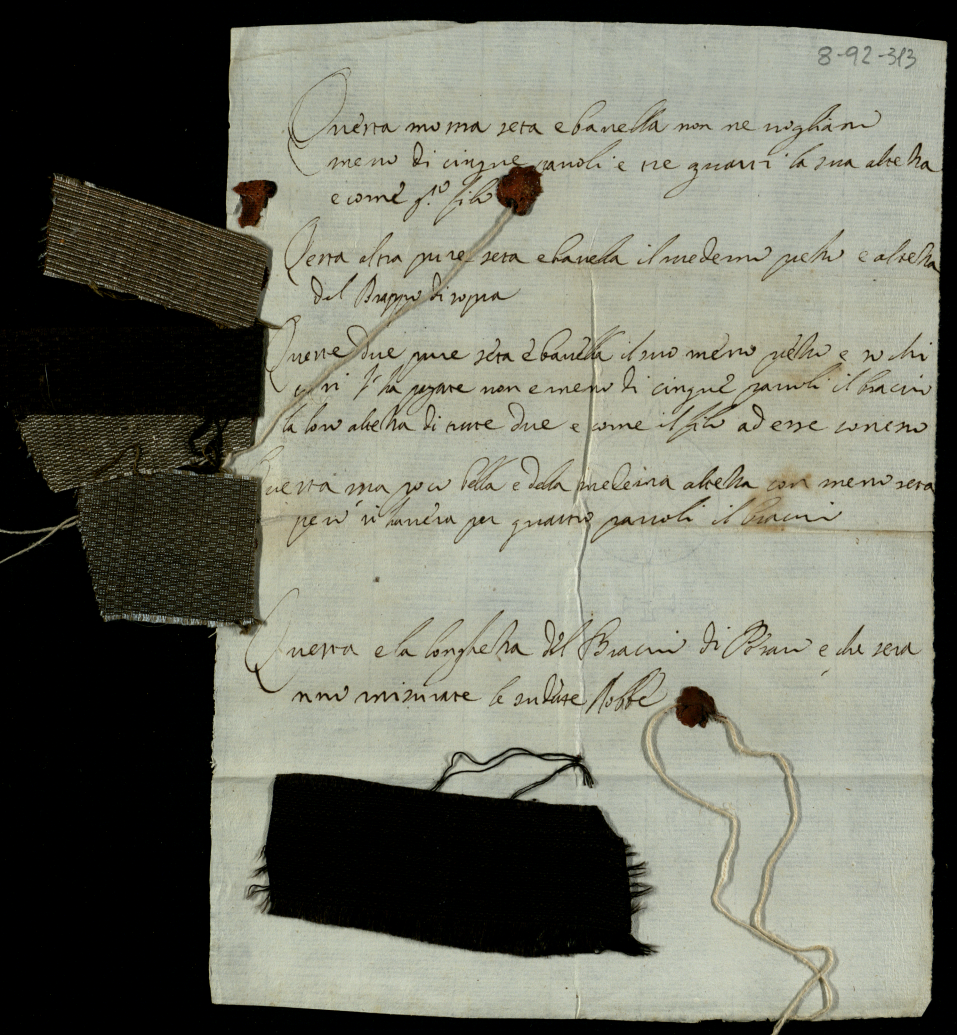 8-92-313
Questa mostra seta e bavella non ne vogliano
meno di cinque pauoli e tre quarti la sua altezza
e come q.to filo
Questa altra pure seta e bavella il medemo pezzo e altezza
del Drappo di sopra
Queste due pure seta e bavella il suo meno pezzo e so chi
non e meno di cinque pauoli il braccio
la loro altezza di tutte due e come il filo ad esse conesso
Questa ma poco bella e dela medesima altezza con meno seta
però si haverà per quattro pauoli il braccio
Questa e la longhezza del Braccio di Pesaro e che sera
nno misurate le sudete Robbe